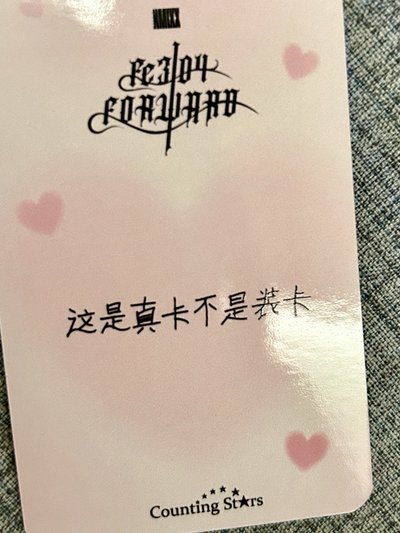 NMIXX
Fe3O4
FORWARD
这是真卡不是装卡
Counting Stars